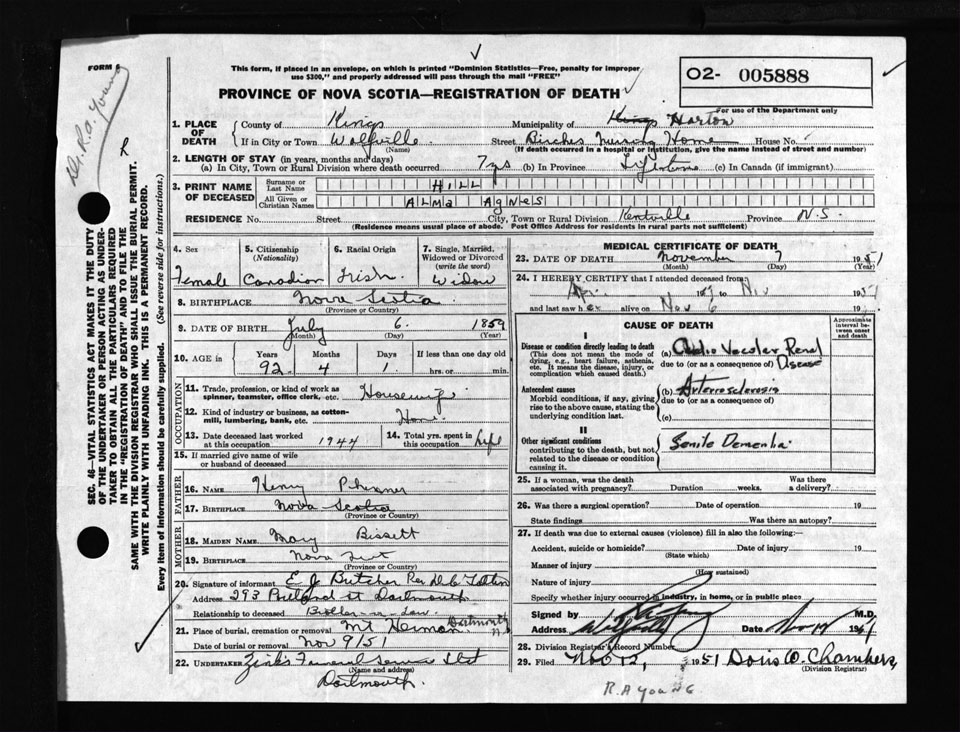 FORM 6
Dr. R.A. Young
This form, if placed in an envelope, on which is printed "Dominion Statistics—Free, penalty for improper
use $300," and properly addressed will pass through the mail "FREE"
PROVINCE OF NOVA SCOTIA—REGISTRATION OF DEATH
02- 005888
For use of the Department only
SEC. 46—VITAL STATISTICS ACT MAKES IT THE DUTY
OF THE UNDERTAKER OR PERSON ACTING AS UNDER-
TAKER TO OBTAIN ALL THE PARTICULARS REQUIRED
IN THE "REGISTRATION OF DEATH" AND TO FILE THE
SAME WITH THE DIVISION REGISTRAR WHO SHALL ISSUE THE BURIAL PERMIT.
WRITE PLAINLY WITH UNFADING INK. THIS IS A PERMANENT RECORD.
Every item of Information should be carefully supplied. (See reverse side for instructions.)
1. PLACE OF DEATH County of Kings Municipality of Kings Horton
If in City or Town Wolfville (Name) Street Birches Nursing Home House No.
(If death occurred in a hospital or institution, give the name instead of street and number)
2. LENGTH OF STAY (in years, months and days)
(a) In City, Town or Rural Division where death occurred 7 yrs (b) In Province Lifetime (c) In Canada (if immigrant)
3. PRINT NAME OF DECEASED Surname or Last Name HILL
All Given or Christian Names ALMA AGNES
RESIDENCE No. Street City, Town or Rural Division Kentville Province N.S.
(Residence means usual place of abode. Post Office Address for residents in rural parts not sufficient)
4. Sex Female
5. Citizenship (Nationality) Canadian
6. Racial Origin Irish
7. Single, Married, Widowed or Divorced (write the word) Widow
8. BIRTHPLACE Nova Scotia
(Province or Country)
9. DATE OF BIRTH July 6 1859
(Month) (Day) (Year)
10. AGE IN Years 92 Months 4 Days 1 If less than one day old hrs. or min.
OCCUPATION
11. Trade, profession, or kind of work as spinner, teamster, office clerk, etc. Housewife
12. Kind of industry or business, as cotton-mill, lumbering, bank, etc. Home
13. Date deceased last worked at this occupation 1944
14. Total yrs. spent in this occupation Life
15. If married give name of wife or husband of deceased
FATHER
16. NAME Henry
17. BIRTHPLACE Nova Scotia
(Province or Country)
MOTHER
18. MAIDEN NAME Mary Bissett
19. BIRTHPLACE Nova Scotia
(Province or Country)
20. Signature of informant E J Butcher Per
Address 293 Portland St Dartmouth
Relationship to deceased Brother-in-Law
21. Place of burial, cremation or removal Mt Hermon Dartmouth N.S.
Date of burial or removal Nov 9/51
22. UNDERTAKER Zink's Funeral Service
(Name and address)
Dartmouth.
MEDICAL CERTIFICATE OF DEATH
23. DATE OF DEATH November 7 1951
(Month) (Day) (Year)
24. I HEREBY CERTIFY that I attended deceased from:
19 to Nov 1951
and last saw her alive on Nov 6 19
CAUSE OF DEATH
Approximate interval between onset and death
I
Disease or condition directly leading to death
(This does not mean the mode of dying, e.g., heart failure, asthenia, etc. It means the disease, injury, or complication which caused death.)
(a) Cardio Vascular Renal Disease
due to (or as a consequence of)
Antecedent causes
Morbid conditions, if any, giving rise to the above cause, stating the underlying condition last.
(b) Arteriosclerosis
due to (or as a consequence of)
(c)
II
Other significant conditions
contributing to the death, but not related to the disease or condition causing it.
Senile Dementia
25. If a woman, was the death associated with pregnancy? Duration weeks. Was there a delivery?
26. Was there a surgical operation? Date of operation 19
State findings Was there an autopsy?
27. If death was due to external causes (violence) fill in also the following:—
Accident, suicide or homicide? Date of injury 19
(State which)
Manner of injury
(How sustained)
Nature of injury
Specify whether injury occurred in industry, in home, or in public place
Signed by R A Young M.D.
Address Wolfville Date Nov 1951
28. Division Registrar's Record Number
29. Filed Nov 12, 1951 Doris W. Chambers,
(Division Registrar)
R.A YOUNG